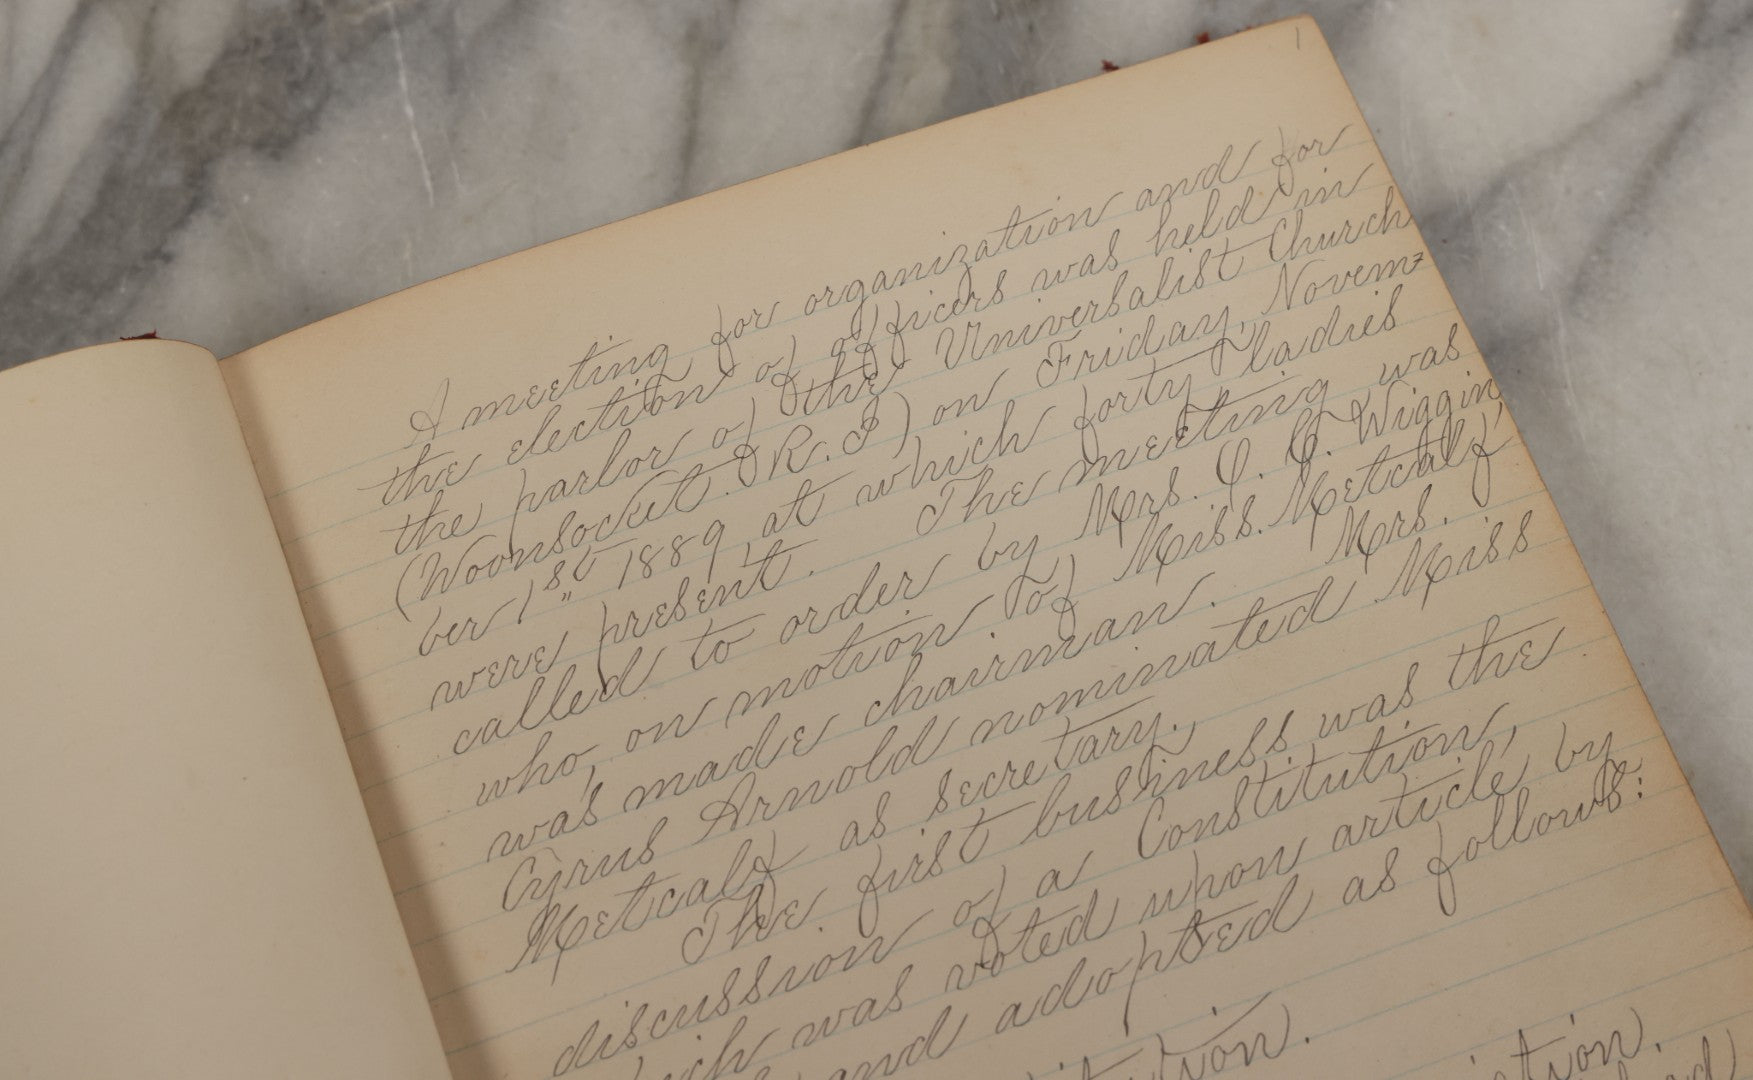 1
A meeting for organization and for
the election of officers was held in
the parlor of the Universalist Church
(Woonsocket. R. I) on Friday, Novem=
ber 1st 1889, at which forty ladies
were present. The meeting was
called to order by Mrs. C. C. Wiggin
who, on motion of Miss. Metcalf
was made chairman. Mrs.
Cyrus Arnold nominated Miss
Metcalf as secretary.
The first business was the
discussion of a Constitution,
which was voted upon article by
and adopted as follows: